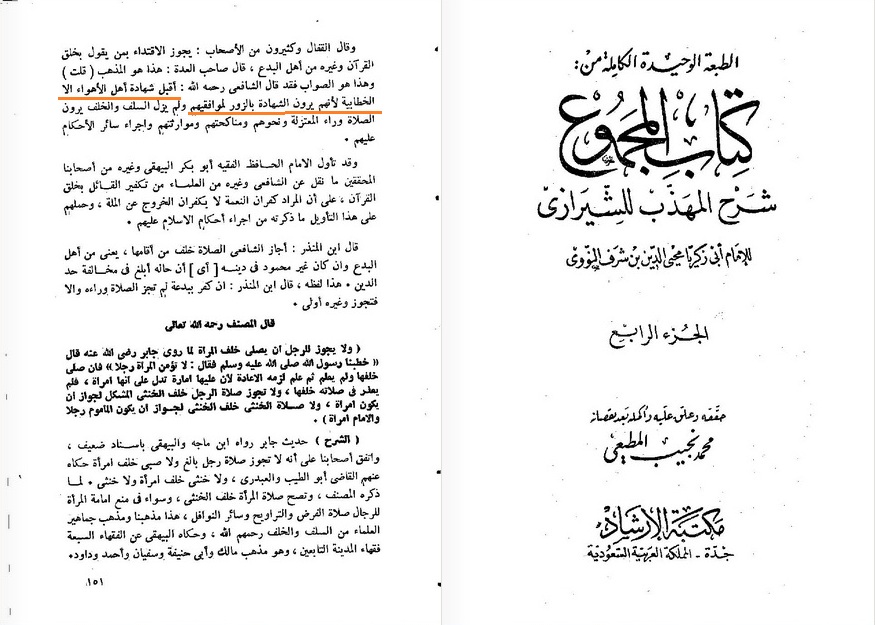 وقال القفال وكثيرون من الأصحاب : يجوز الاقتداء بمن يقول بخلق
القرآن وغيره من أهل البدع ، قال صاحب العدة : هذا هو المذهب ( قلت )
وهذا هو الصواب فقد قال الشافعى رحمه الله : أقبل شهادة أهل الأهواء الا
الخطابية لأنهم يرون الشهادة بالزور لموافقيهم ولم يزل السلف والخلف يرون
الصلاة وراء المعتزلة ونحوهم ومناكحتهم وموارثتهم واجراء سائر الأحكام
عليهم •
وقد تأول الامام الحافظ الفقيه أبو بكر البيهقى وغيره من أصحابنا
المحققين ما نقل عن الشافعى وغيره من العلماء من تكفير القائل بخلق
القرآن ، على أن المراد كفران النعمة لا بكفران الخروج عن الملة ، وحملهم
على هذا التأويل ما ذكرته من اجراء أحكام الاسلام عليهم •
قال ابن المنذر : أجاز الشافعى الصلاة خلف من أقامها ، يعنى من أهل
البدع وان كان غير محمود فى دينه [ أى ] أن حاله أبلغ فى مخالفة حد
الدين • هذا لفظه ، قال ابن المنذر : ان كفر ببدعة لم تجز الصلاة وراءه والا
فتجوز وغيره أولى •
قال المصنف رحمه الله تعالى
( ولا يجوز للرجل ان يصلى خلف المرأة لما روى جابر رضى الله عنه قال
« خطبنا رسول الله صلى الله عليه وسلم فقال : لا تؤمن المرأة رجلا » فان صلى
خلفها ولم يعلم ثم علم لزمه الاعادة لأن عليها امارة تدل على انها امراة ، فلم
يعذر فى صلاته خلفها ، ولا تجوز صلاة الرجل خلف الخنثى المشكل لجواز ان
يكون امراة ، ولا صلاة الخنثى خلف الخنثى لجواز ان يكون الماموم رجلا
والامام امراة ) •
( الشرح ) حديث جابر رواه ابن ماجه والبيهقى باسناد ضعيف ،
واتفق أصحابنا على أنه لا تجوز صلاة رجل بالغ ولا صبى خلف امرأة حكاه
عنهم القاضى أبو الطيب والعبدرى ، ولا خنثى خلف امرأة ولا خنثى • لما
ذكره المصنف ، وتصح صلاة المرأة خلف الخنثى ، وسواء فى منع امامة المرأة
للرجال صلاة الفرض والتراويح وسائر النوافل ، هذا مذهبنا ومذهب جماهير
العلماء من السلف والخلف رحمهم الله ، وحكاه البيهقى عن الفقهاء السبعة
فقهاء المدينة التابعين ، وهو مذهب مالك وأبى حنيفة وسفيان وأحمد وداود•
١٥١
الطبعة الوحيدة الكاملة من :
كتاب المجموع
شرح المهذب للشيرازى
للإمام أبى زكريا محيى الدين بن شرف النووى
الجزء الرابع
حققه وعلق عليه وأكمله بعد نقصانه
محمد نجيب المطيعى
مكتبة الإرشاد
جدة - المملكة العربية السعودية